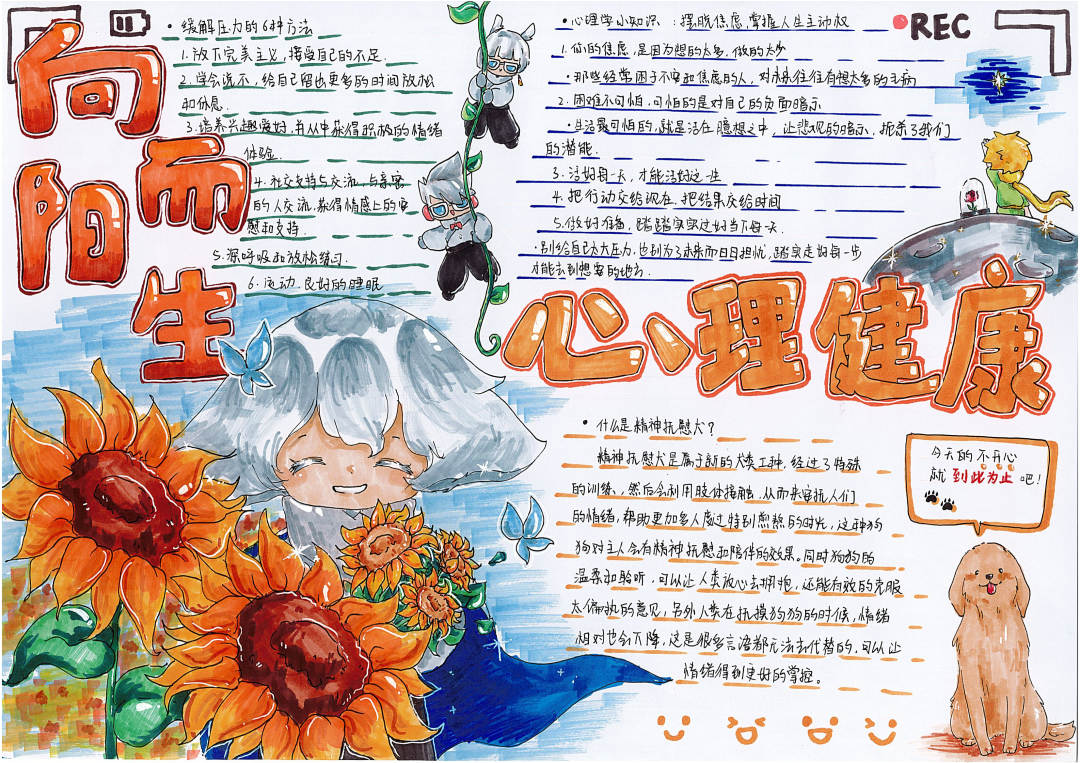 向阳而生
心理健康
REC
• 缓解压力的6种方法
1. 放下完美主义，接受自己的不足.
2. 学会说不，给自己留出更多的时间放松
和休息.
3. 培养兴趣爱好，并从中获得积极的情绪
体验.
4. 社交支持与交流，与亲密
的人交流，获得情感上的安
慰和支持.
5. 深呼吸和放松练习.
6. 运动、良好的睡眠
• 心理学小知识：摆脱焦虑，掌握人生主动权
1. 你的焦虑，是因为想的太多，做的太少
• 那些经常困于不安和焦虑的人，对未来往往有想太多的毛病
2. 困难不可怕，可怕的是对自己的负面暗示
• 生活最可怕的，就是活在臆想之中，让悲观的暗示，扼杀了我们
的潜能.
3. 活好每一天，才能活好这一生
4. 把行动交给现在，把结果交给时间
5. 做好准备，踏踏实实过好当下每一天.
• 别给自己太大压力，也别为了未来而日日担忧，踏实走好每一步
才能去到想要的地方.
• 什么是精神抚慰犬？
精神抚慰犬是属于新的犬类工种，经过了特殊
的训练，然后会利用肢体接触，从而来安抚人们
的情绪，帮助更加多人度过特别煎熬的时光，这种狗
狗对主人会有精神抚慰和陪伴的效果，同时狗狗的
温柔和聆听，可以让人类放心去拥抱，还能有效的克服
太偏执的意见，另外人类在抚摸狗狗的时候，情绪
相对也会下降，这是很多言语都无法去代替的，可以让
情绪得到更好的掌控。
今天的不开心
就到此为止吧！